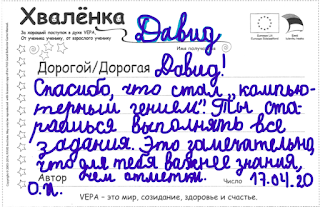 Хвалёнка
За хороший поступок в духе VEPA,
От ученика ученику, от взрослого ученику
Давид
Имя получателя
Дорогой/Дорогая Давид!
Спасибо, что стал „компью-
терный гением“. Ты ста-
раешься выполнять все
задания. Это замечательно,
что для тебя важнее знания,
чем отметки.
Автор
О.П.
Число 17.04.20
VEPA – это мир, созидание, здоровье и счастье.